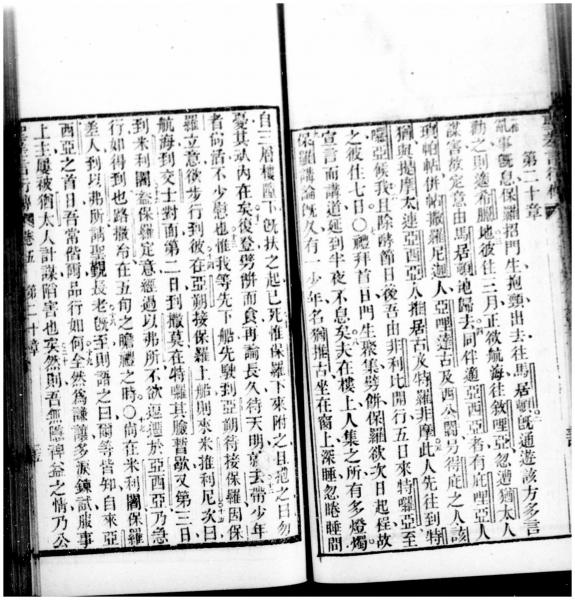 第二十章
亂事旣息保羅招門生抱頸出去往馬居頓旣通遊該方多言
勸之則進希臘地彼往三月正欲航海往敘哩亞忽遭猶太人
謀害故定意由馬居頓地歸去同伴適亞西亞者有庇哩亞人
瑣帕帖併帖撒羅尼迦人亞哩達古及西公闍另得庇之人該
猶與提摩太連亞西亞人推居古及特羅非摩此人先往到特
囉亞候我且除酵節日後吾由非利比開行五日來特囉亞至
之彼住七日○禮拜首日門生聚集劈餅保羅欲次日起程故
宣言而講道延到半夜不息矣夫在樓上人集之所有多燈燭
保羅講論旣久有一少年名猶推古坐在窗上深睡忽睠睡間
自三層樓墮下旣扶之起已死惟保羅下來附之且抱之曰勿
憂其魂內在矣後登劈餅而食再論長久待天明就去帶少年
者尙活不少慰也惟我等先下船先駛到亞朔待接保羅因保
羅立意欲步行到彼在亞朔接保羅上船則來米推利尼次日
航海到交士對面第二日到撒莫在特囉其臉暫歇又第三日
到米利闍蓋保羅定意經過以弗所不欲逗遛於亞西亞乃急
行如得到也路撒冷在五旬之瞻禮之時○尙在米利闍保羅
差人到以弗所請聖觀長老旣至則語之曰爾等皆知自來亞
西亞之首日吾常偕爾品行如何全然為謙讓多淚鍊試服事
上主屢被猶太人計謀陷害也矣然則吾無隱裨益之情乃公